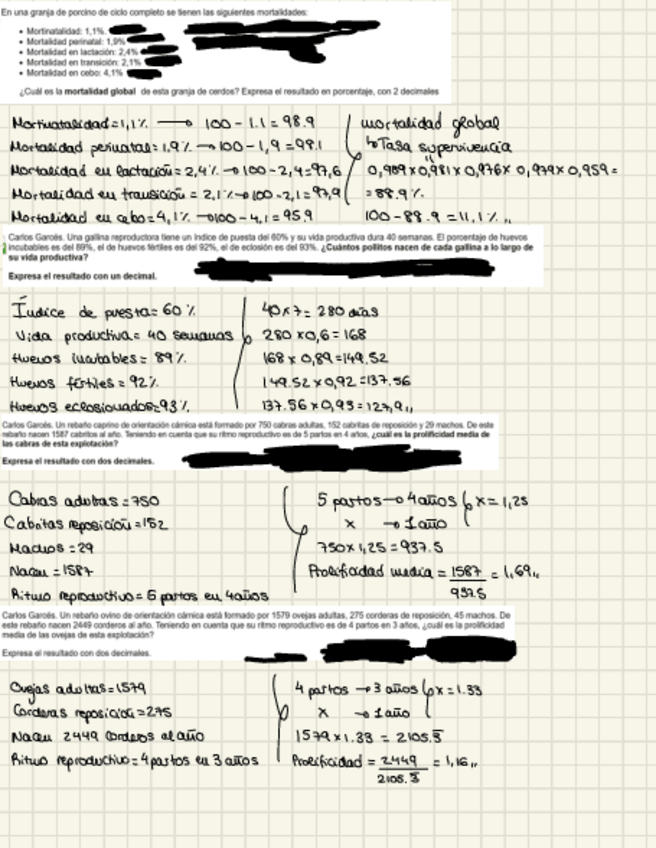 En una granja de porcino de ciclo completo se tienen las siguientes mortalidades:
• Mortinatalidad: 1,1%
• Mortalidad perinatal: 1,9%
• Mortalidad en lactación: 2,4%
• Mortalidad en transición: 2,1%
• Mortalidad en cebo: 4,1%
¿Cuál es la mortalidad global de esta granja de cerdos? Expresa el resultado en porcentaje, con 2 decimales
Mortinatalidad=1,1% → 100-1.1=98.9
Mortalidad perinatal=1,9% → 100-1,9=98.1
Mortalidad en lactación=2,4% → 100-2,4=97,6
Mortalidad en transición=2,1% → 100-2,1=97,9
Mortalidad en cebo=4,1% → 100-4,1=95.9
mortalidad global
↳ Tasa supervivencia
"
0,989×0,981×0,976×0,979×0,959=
=88.9%
100-88.9=11,1%"
Carlos Garcés. Una gallina reproductora tiene un índice de puesta del 60% y su vida productiva dura 40 semanas. El porcentaje de huevos
incubables es del 89%, el de huevos fértiles es del 92%, el de eclosión es del 93%. ¿Cuántos pollitos nacen de cada gallina a lo largo de
su vida productiva?
Expresa el resultado con un decimal.
Índice de puesta=60%
Vida productiva=40 semanas
Huevos incubables=89%
Huevos fértiles=92%
Huevos eclosionados=93%
40×7=280 días
280×0,6=168
168×0,89=149.52
149.52×0,92=137.56
137.56×0,93=127,9"
Carlos Garcés. Un rebaño caprino de orientación cárnica está formado por 750 cabras adultas, 152 cabritas de reposición y 29 machos. De este
rebaño nacen 1587 cabritos al año. Teniendo en cuenta que su ritmo reproductivo es de 5 partos en 4 años, ¿cuál es la prolificidad media de
las cabras de esta explotación?
Expresa el resultado con dos decimales.
Cabras adultas=750
Cabritas reposición=152
Machos=29
Nacen=1587
Ritmo reproductivo=5 partos en 4 años
5 partos → 4 años x=1,25
x → 1 año
750×1,25=937.5
Prolificidad media = 1587 = 1,69"
937.5
Carlos Garcés. Un rebaño ovino de orientación cárnica está formado por 1579 ovejas adultas, 275 corderas de reposición, 45 machos. De
este rebaño nacen 2449 corderos al año. Teniendo en cuenta que su ritmo reproductivo es de 4 partos en 3 años, ¿cuál es la prolificidad
media de las ovejas de esta explotación?
Expresa el resultado con dos decimales.
Ovejas adultas=1579
Corderas reposición=275
Nacen 2449 corderos al año
Ritmo reproductivo=4 partos en 3 años
4 partos → 3 años x=1.33
x → 1 año
1579×1.33=2105.3̅
Prolificidad = 2449 = 1,16"
2105.3̅